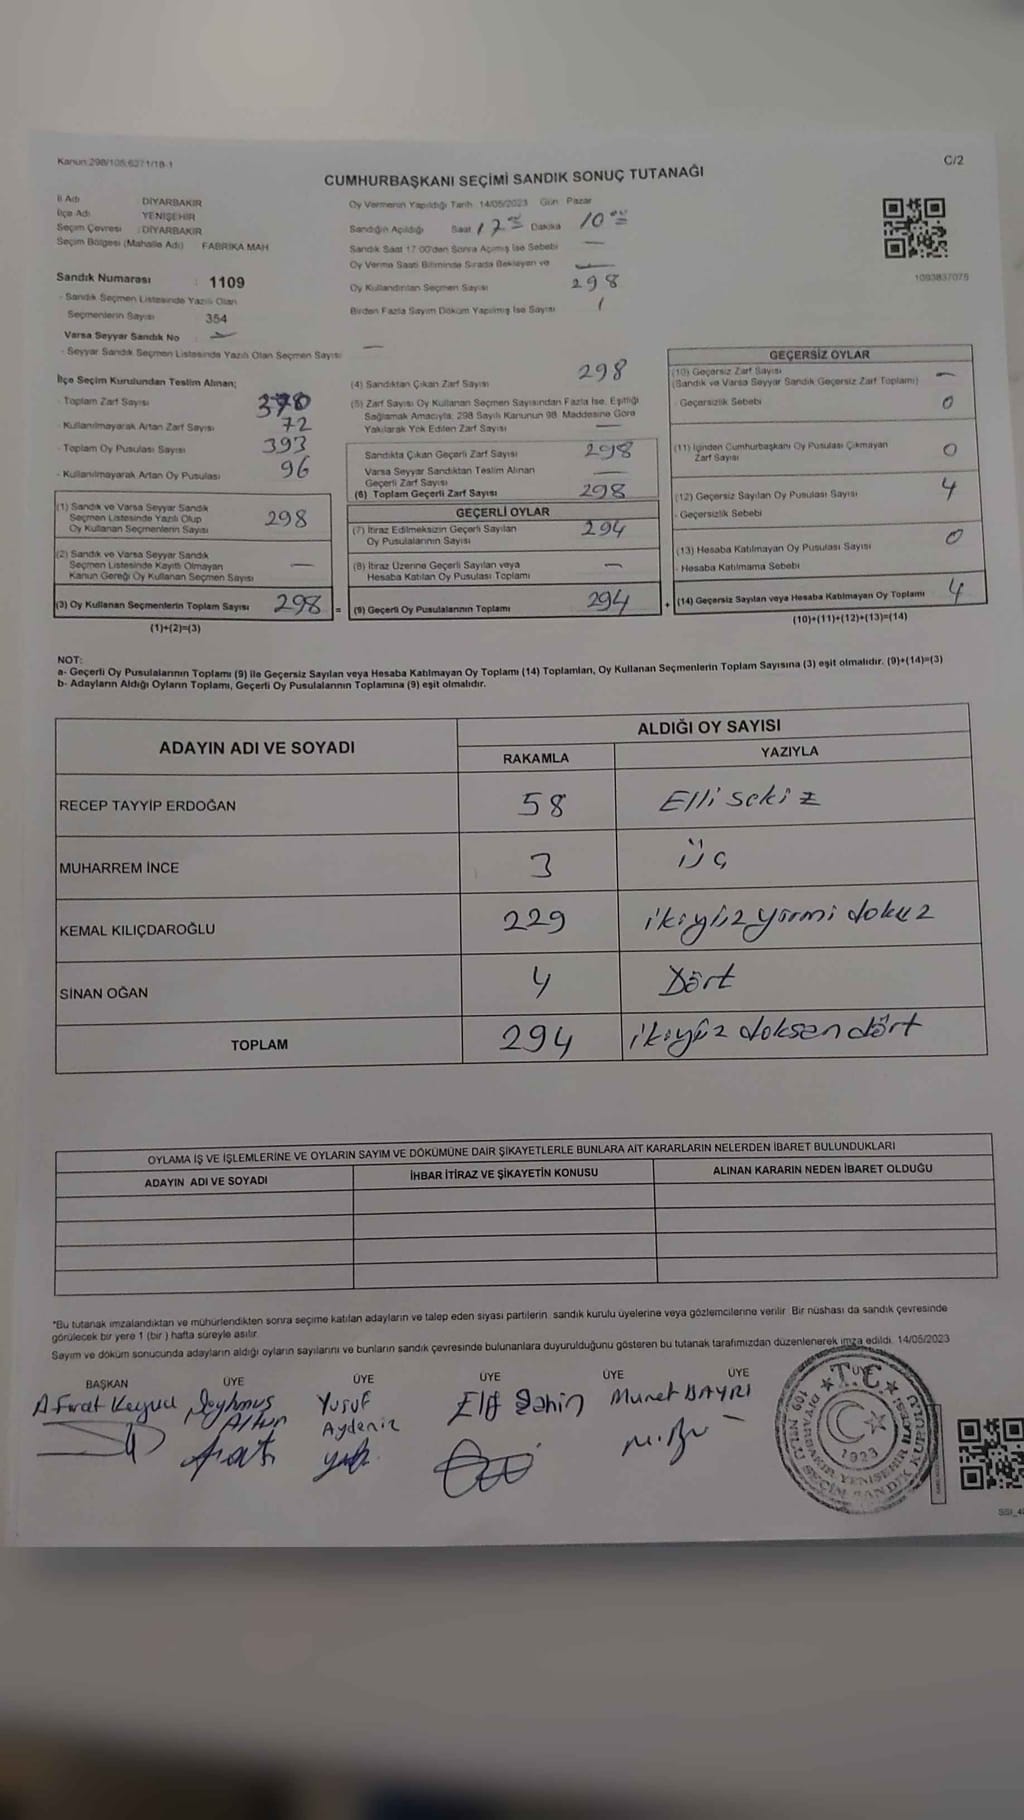 Kanun:298/105;6271/18-1
C/2
CUMHURBAŞKANI SEÇİMİ SANDIK SONUÇ TUTANAĞI
İl Adı DİYARBAKIR
İlçe Adı YENİŞEHİR
Seçim Çevresi : DİYARBAKIR
Seçim Bölgesi (Mahalle Adı) FABRİKA MAH
Sandık Numarası : 1109
- Sandık Seçmen Listesinde Yazılı Olan
Seçmenlerin Sayısı 354
Varsa Seyyar Sandık No
- Seyyar Sandık Seçmen Listesinde Yazılı Olan Seçmen Sayısı —
Oy Vermenin Yapıldığı Tarih 14/05/2023 Gün Pazar
Sandığın Açıldığı Saat 17 Dakika 10
Sandık Saat 17:00'den Sonra Açılmış İse Sebebi —
Oy Verme Saati Bitiminde Sırada Bekleyen ve
Oy Kullandırılan Seçmen Sayısı 298
Birden Fazla Sayım Döküm Yapılmış İse Sayısı 1
1093837075
İlçe Seçim Kurulundan Teslim Alınan;
- Toplam Zarf Sayısı 370
- Kullanılmayarak Artan Zarf Sayısı 72
- Toplam Oy Pusulası Sayısı 393
- Kullanılmayarak Artan Oy Pusulası 96
(1) Sandık ve Varsa Seyyar Sandık
Seçmen Listesinde Yazılı Olup
Oy Kullanan Seçmenlerin Sayısı 298
(2) Sandık ve Varsa Seyyar Sandık
Seçmen Listesinde Kayıtlı Olmayan
Kanun Gereği Oy Kullanan Seçmen Sayısı —
(3) Oy Kullanan Seçmenlerin Toplam Sayısı 298 =
(1)+(2)=(3)
(4) Sandıktan Çıkan Zarf Sayısı 298
(5) Zarf Sayısı Oy Kullanan Seçmen Sayısından Fazla İse, Eşitliği
Sağlamak Amacıyla, 298 Sayılı Kanunun 98. Maddesine Göre
Yakılarak Yok Edilen Zarf Sayısı —
Sandıkta Çıkan Geçerli Zarf Sayısı 298
Varsa Seyyar Sandıktan Teslim Alınan
Geçerli Zarf Sayısı —
(6) Toplam Geçerli Zarf Sayısı 298
GEÇERLİ OYLAR
(7) İtiraz Edilmeksizin Geçerli Sayılan
Oy Pusulalarının Sayısı 294
(8) İtiraz Üzerine Geçerli Sayılan veya
Hesaba Katılan Oy Pusulası Toplamı —
(9) Geçerli Oy Pusulalarının Toplamı 294 +
GEÇERSİZ OYLAR
(10) Geçersiz Zarf Sayısı —
(Sandık ve Varsa Seyyar Sandık Geçersiz Zarf Toplamı)
- Geçersizlik Sebebi 0
(11) İçinden Cumhurbaşkanı Oy Pusulası Çıkmayan
Zarf Sayısı 0
(12) Geçersiz Sayılan Oy Pusulası Sayısı 4
- Geçersizlik Sebebi
(13) Hesaba Katılmayan Oy Pusulası Sayısı 0
- Hesaba Katılmama Sebebi
(14) Geçersiz Sayılan veya Hesaba Katılmayan Oy Toplamı 4
(10)+(11)+(12)+(13)=(14)
NOT:
a- Geçerli Oy Pusulalarının Toplamı (9) ile Geçersiz Sayılan veya Hesaba Katılmayan Oy Toplamı (14) Toplamları, Oy Kullanan Seçmenlerin Toplam Sayısına (3) eşit olmalıdır. (9)+(14)=(3)
b- Adayların Aldığı Oyların Toplamı, Geçerli Oy Pusulalarının Toplamına (9) eşit olmalıdır.
ADAYIN ADI VE SOYADI
ALDIĞI OY SAYISI
RAKAMLA YAZIYLA
RECEP TAYYİP ERDOĞAN 58 Elli sekiz
MUHARREM İNCE 3 üç
KEMAL KILIÇDAROĞLU 229 ikiyüz yirmi dokuz
SİNAN OĞAN 4 Dört
TOPLAM 294 ikiyüz doksan dört
OYLAMA İŞ VE İŞLEMLERİNE VE OYLARIN SAYIM VE DÖKÜMÜNE DAİR ŞİKAYETLERLE BUNLARA AİT KARARLARIN NELERDEN İBARET BULUNDUKLARI
ADAYIN ADI VE SOYADI İHBAR İTİRAZ VE ŞİKAYETİN KONUSU ALINAN KARARIN NEDEN İBARET OLDUĞU
*Bu tutanak imzalandıktan ve mühürlendikten sonra seçime katılan adayların ve talep eden siyasi partilerin sandık kurulu üyelerine veya gözlemcilerine verilir. Bir nüshası da sandık çevresinde
görülecek bir yere 1 (bir) hafta süreyle asılır.
Sayım ve döküm sonucunda adayların aldığı oyların sayılarını ve bunların sandık çevresinde bulunanlara duyurulduğunu gösteren bu tutanak tarafımızdan düzenlenerek imza edildi. 14/05/2023
BAŞKAN ÜYE ÜYE ÜYE ÜYE ÜYE ÜYE
A. Fırat
Yusuf Aydeniz
Elif Şahin
T.C.
1923
DİYARBAKIR YENİŞEHİR İLÇESİ